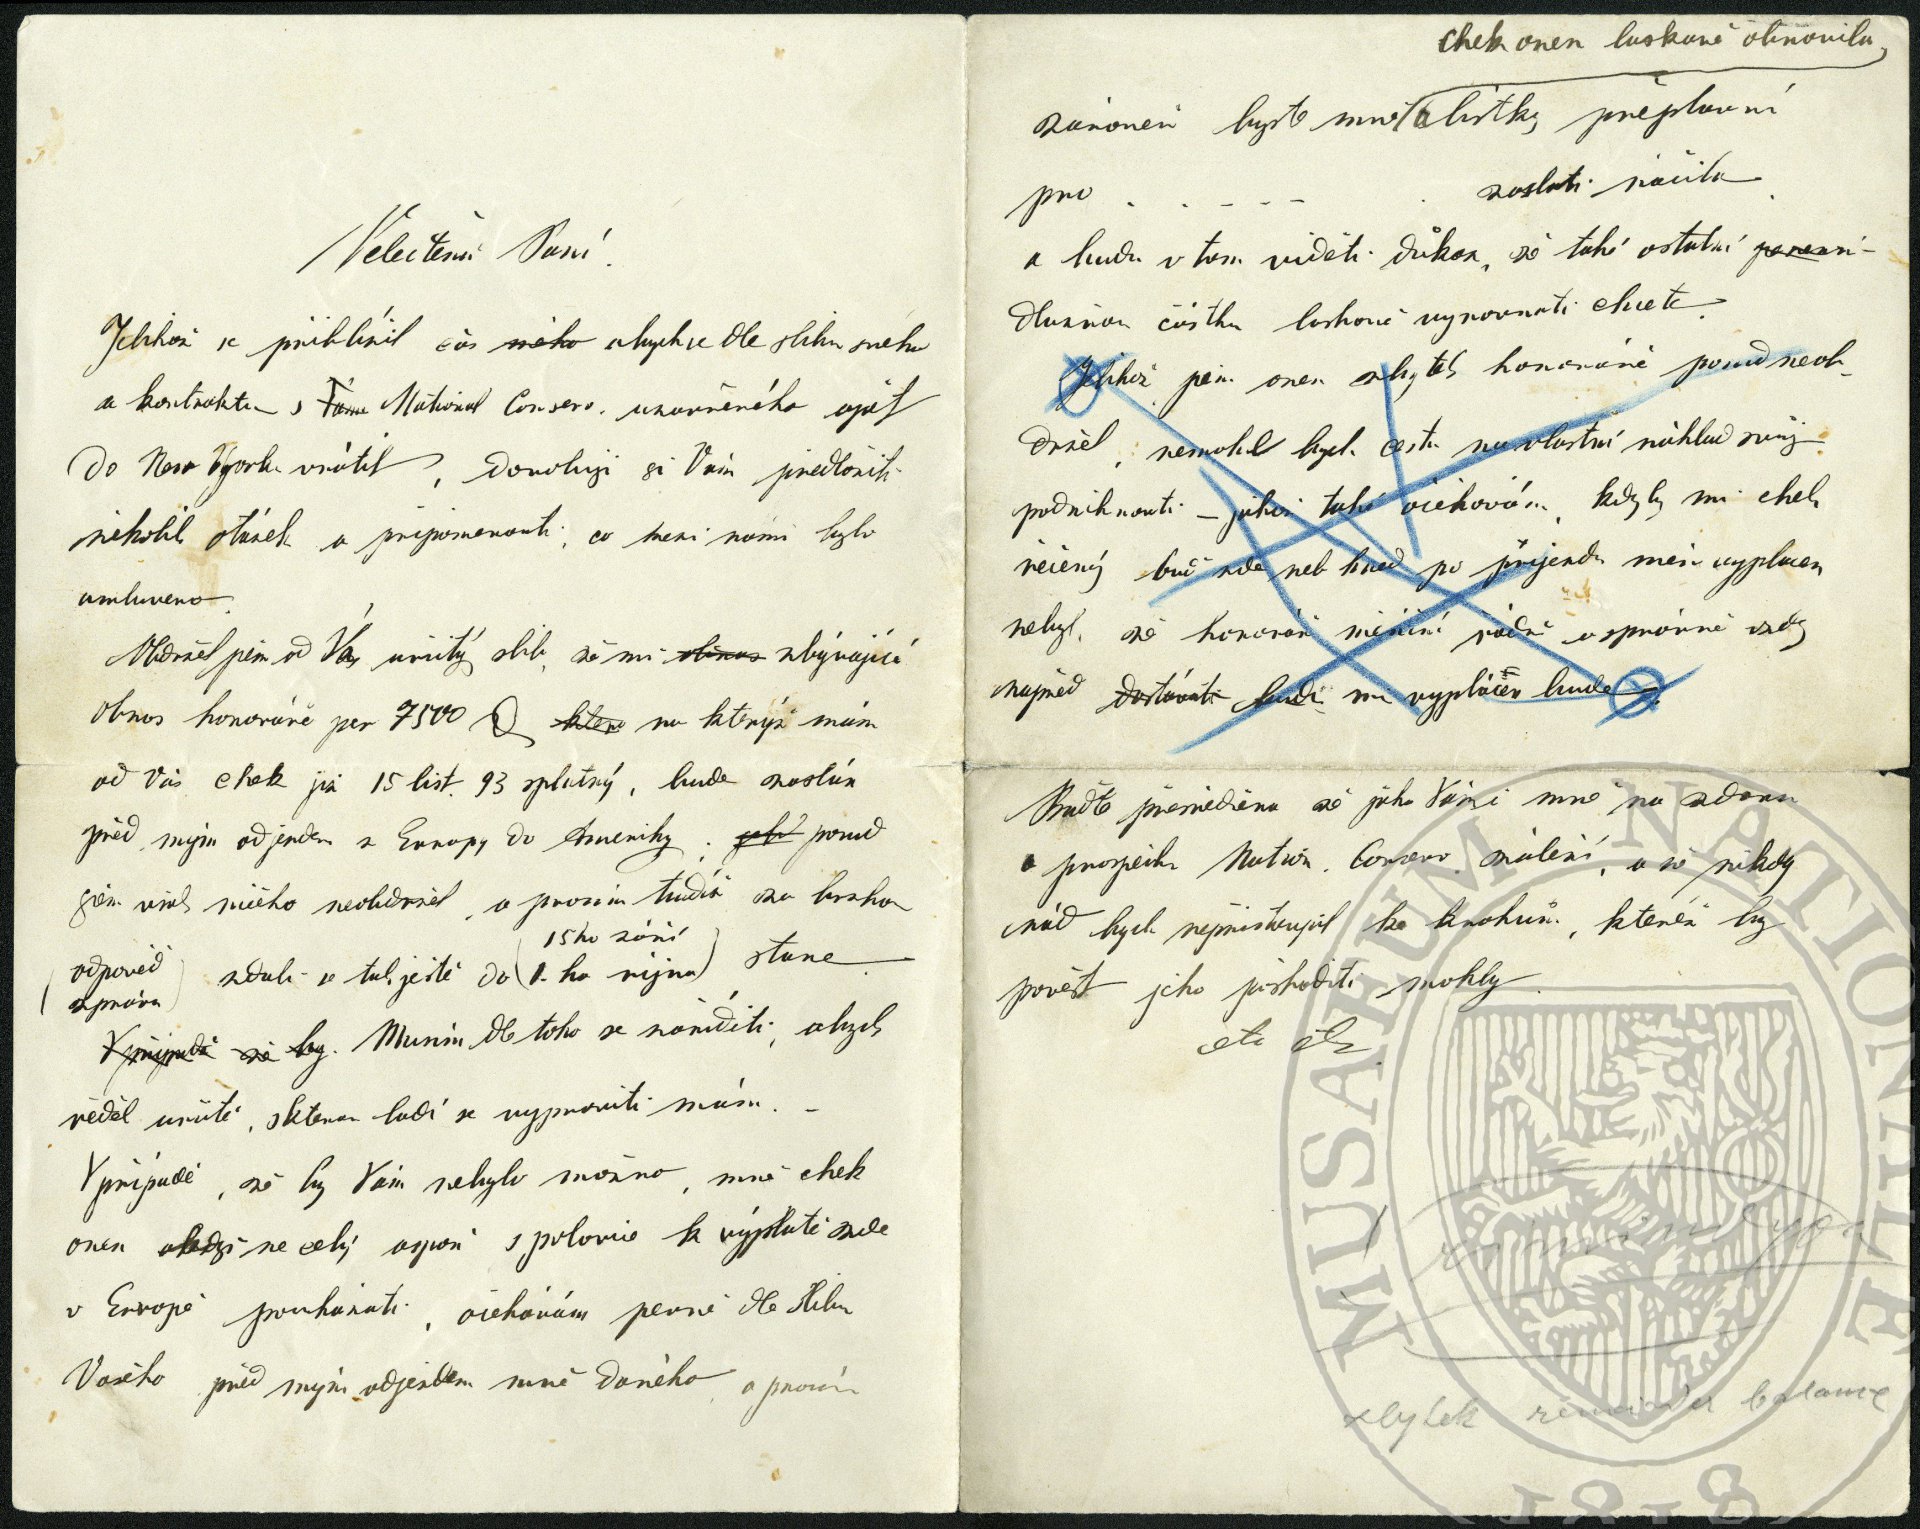 Velectěná Paní.
Jelikož se přiblížil čas abych se dle slibu svého
a kontraktu s National Conserv. uzavřeného opět
do New Yorku vrátil, dovoluji si Vám předložiti
několik otázek a připomenouti, co mezi námi bylo
umluveno.
Obdržel jsem od Vás určitý slib, že mi obnos zbývající
obnos honoráře per 7500 na kterýž mám
od Vás chek již 15 list. 93 splatný, bude zaslán
před mým odjezdem z Evropy do Ameriky. posud
jsem však ničeho neobdržel, a prosím tudíž za laskavou
odpověď
zprávu
zdali se tak ještě do
15ho září
1. ho října
stane
V případě že by. Musím dle toho se naříditi, abych
věděl určitě, s kterou lodí se vypraviti mám. –
V případě, že by Vám nebylo možno, mně chek
onen ne celý aspoň s polovice k výplatě zde
v Evropě poukázati, očekávám pevně dle slibu
Vašeho před mým odjezdem mně daného a prosím
chek onen laskavě obnovila,
zároveň byste mně a lístky přeplavní
pro . . - - - . zaslati ráčila
a budu v tom viděti důkaz, že také ostatní
dlužnou částku laskavě vyrovnati chcete.
Jelikož jsem onen zbytek honoráře posud neob-
držel, nemohl bych cestu na vlastní náklad svůj
podniknouti – jakož také očekávám, kdyby mi chek
řečený buď zde neb hned po příjezdu mém vyplacen
nebyl, že honorář měsíční řádně a správně vždy
napřed dostávati budu mi vyplácen bude.
Buďte přesvědčena že jako Vám i mně na zdaru
a prospěchu Nation. Conserv. záleží, a že nikdy
rád bych nepřistoupil ke krokům, kteréž by
pověst jeho poškoditi mohly.
etc etc
zbytek balance
MUSAEUM NATIONALE
1818